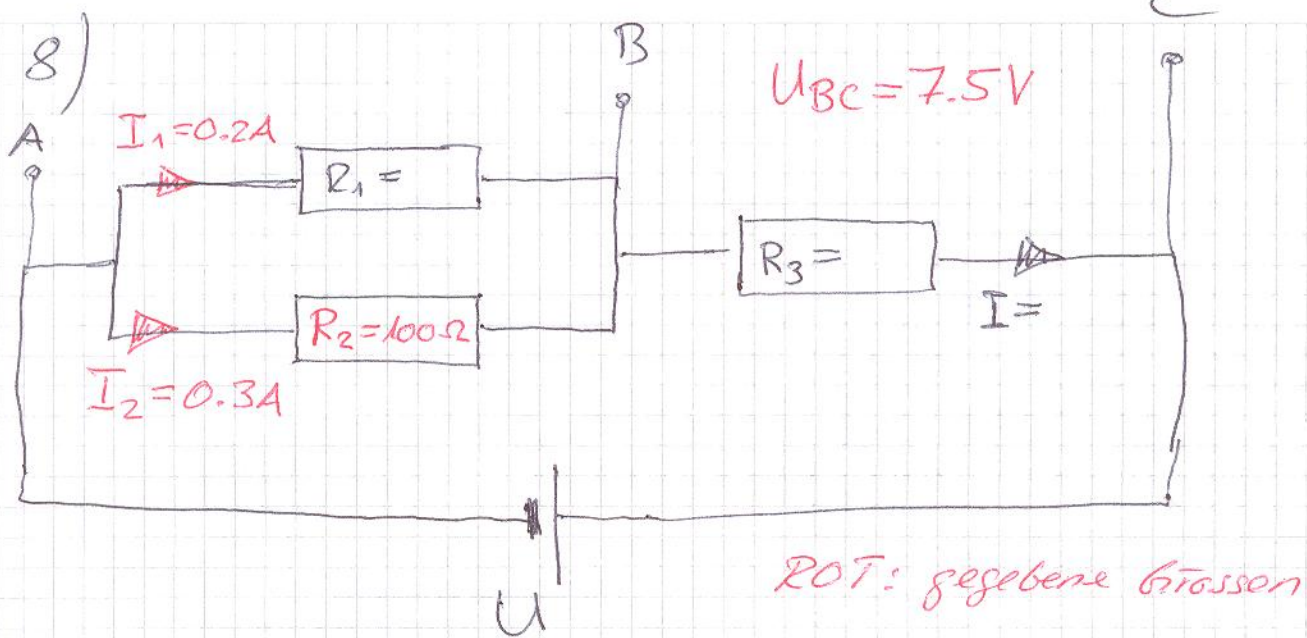 C
8)
B
U_BC = 7.5V
A
I₁ = 0.2A
R₁ =
R₃ =
I =
R₂ = 100Ω
I₂ = 0.3A
U
ROT: gegebene Grössen